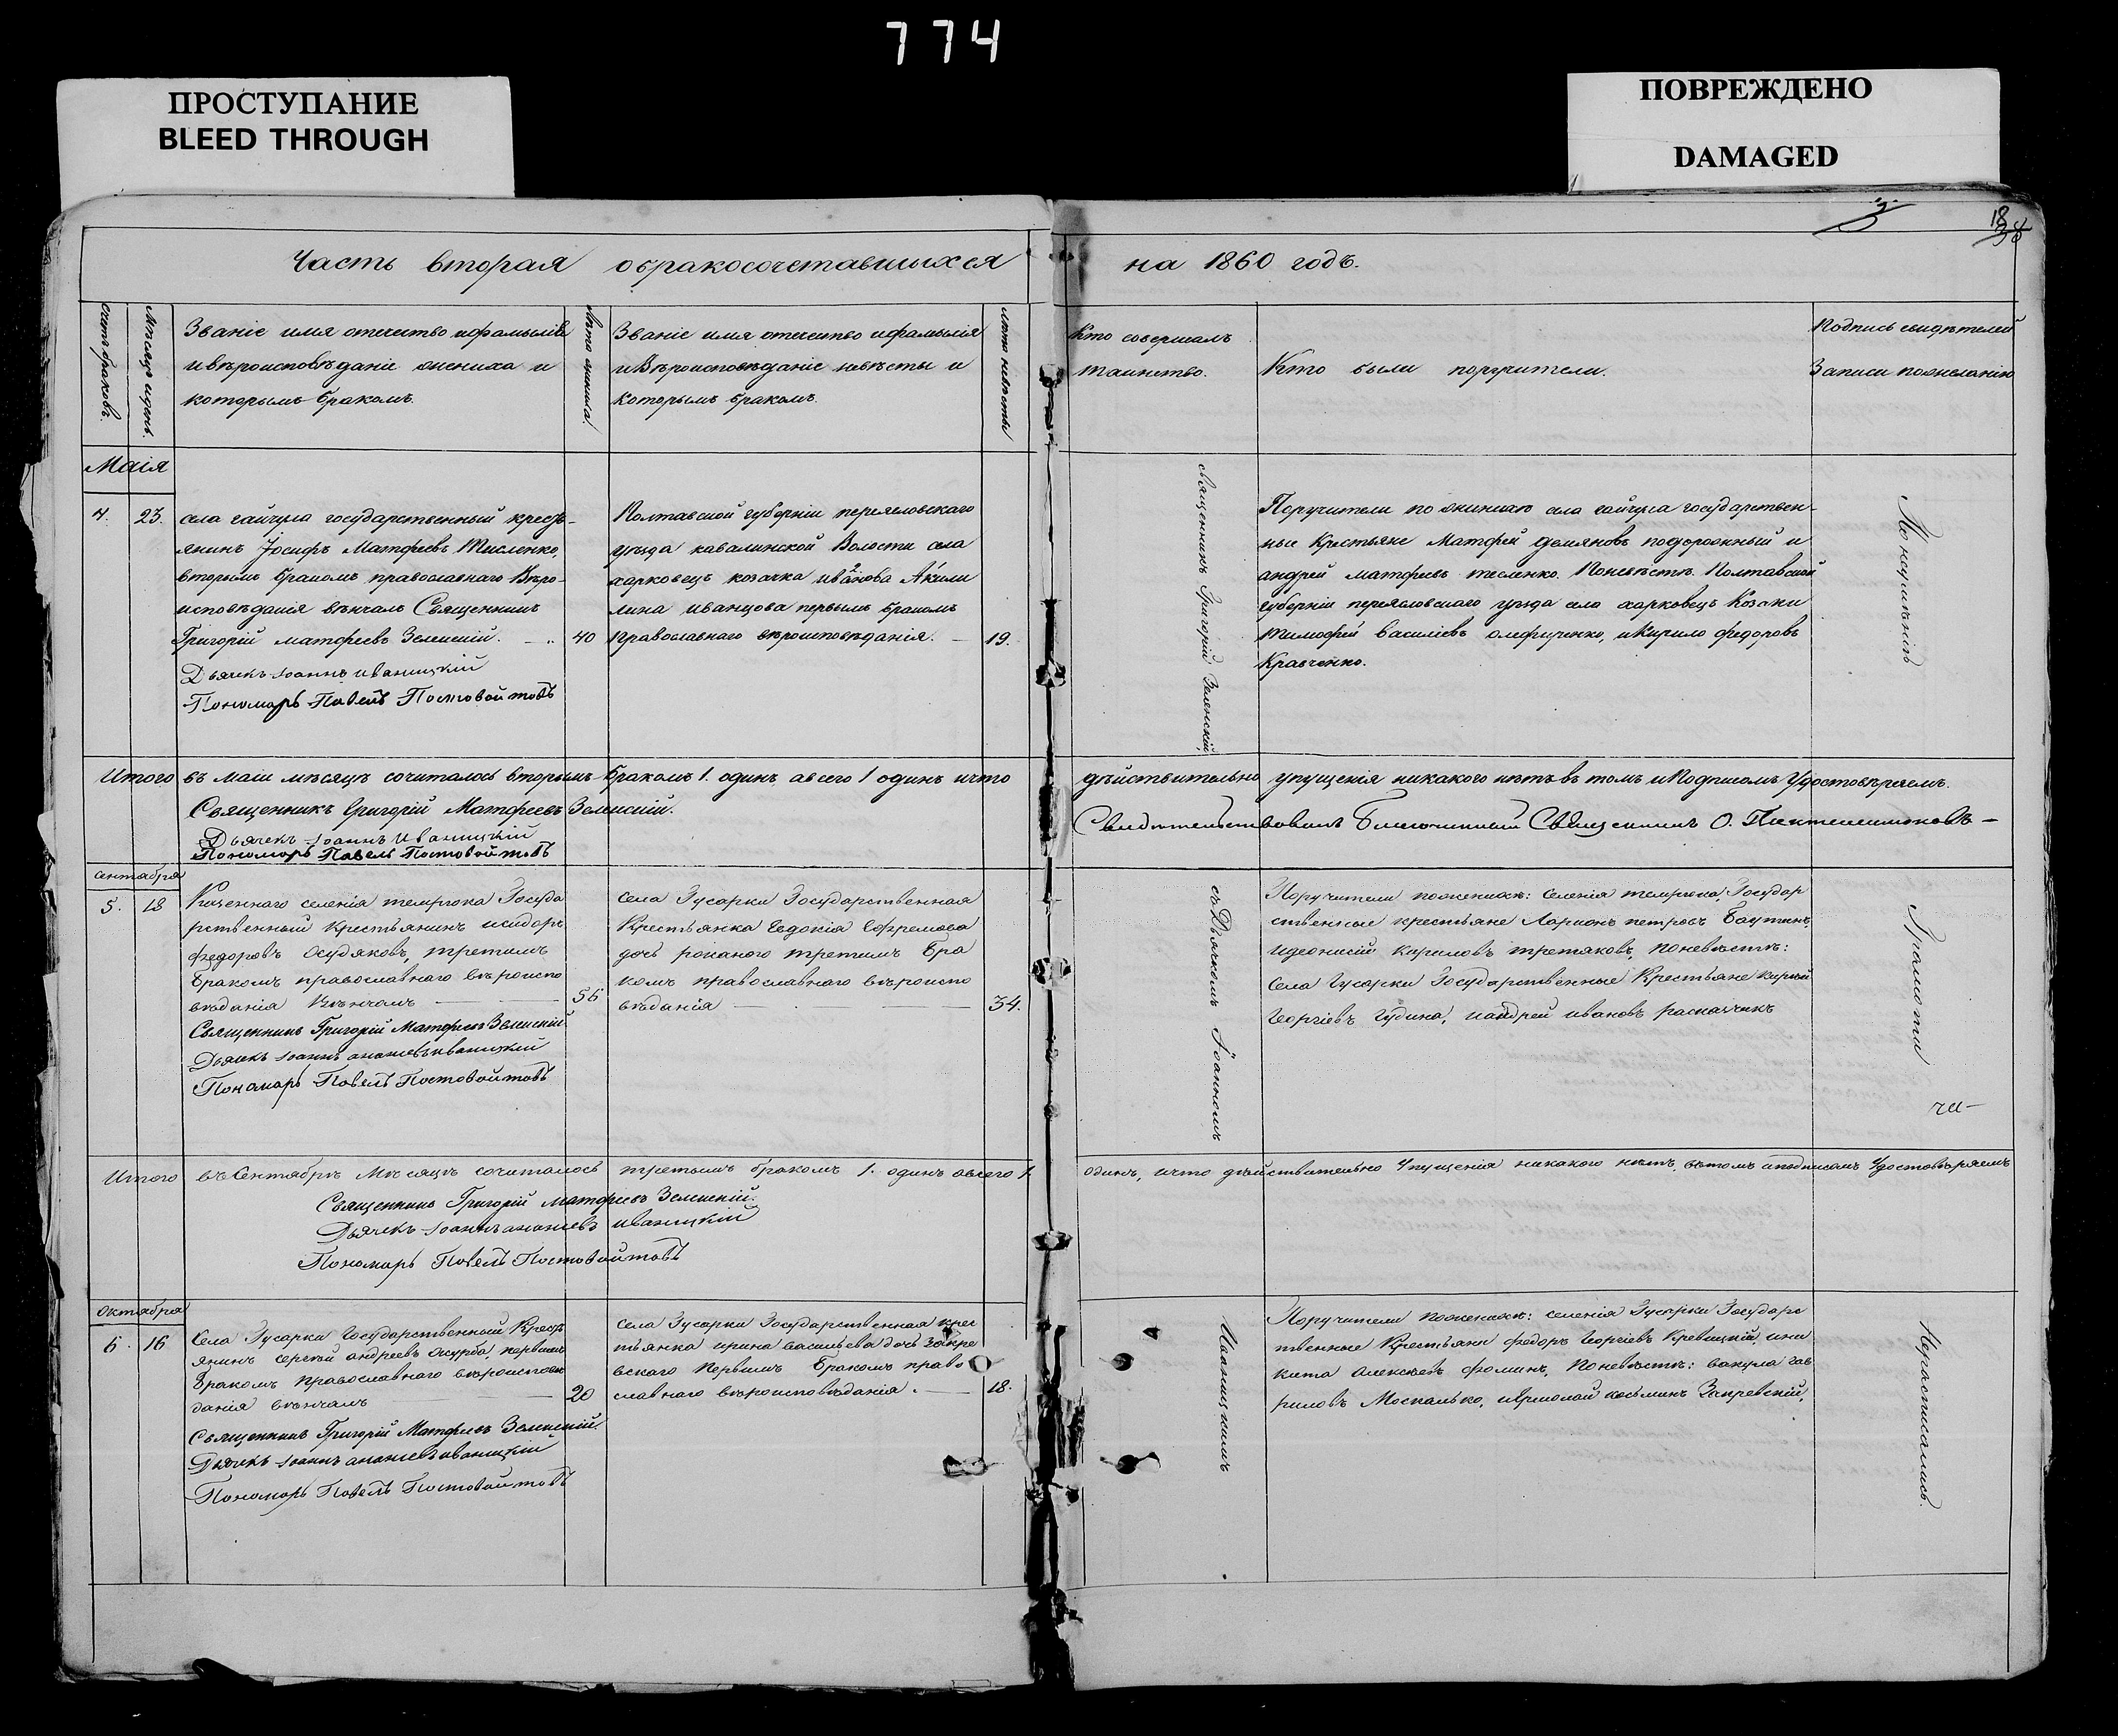 774
ПРОСТУПАНИЕ
BLEED THROUGH
ПОВРЕЖДЕНО
DAMAGED
18
Часть вторая обракосочетавшихся
на 1860 годъ.
счетъ браковъ.
Мѣсяцъ и день.
Званіе имя отечество ифамылія
ивѣроисповѣданіе жениха и
которымъ бракомъ.
Лѣто жениха.
Званіе имя отечество ифамылія
иВѣроисповѣданіе невѣсты и
которымъ бракомъ.
лѣто невѣсты
Кто совершалъ
таинство.
Кто были поручители.
Подпись свидѣтелей
Записи пожеланію
Маія
4. 23.
села гайчула государственный кресть-
янинъ Іосифъ Матфѣевъ Тесленко,
вторымъ бракомъ православнаго Вѣро-
исповѣданія вѣнчалъ Священникъ
Григорій матфеевъ Зеленскій. 40
Дьячекъ Іоаннъ иваницкій
Пономарь Павелъ Постовойтовъ
Полтавской губерніи переяловскаго
уѣзда кавалинской Волости села
харковецъ козачка иванова Акили
лина иванцова первымъ бракомъ
православнаго вѣроисповѣданія. 19.
Священникъ Григорій Зеленскій,
Поручители по женихѣ села гайчула государствен-
ные Крестьяне Матфей демяновъ подорожный и
андрей матфеевъ тесленко. Поневѣстѣ Полтавской
губерніи переяловскаго уѣзда села харковецъ Козаки
Тимофей василіевъ олефиренко, иКирило федоровъ
Кравченко.
Понеумѣнію
Итого въ маіи мѣсяцѣ сочиталось вторымъ бракомъ 1. одинъ, авсего 1 одинъ ичто
дѣйствительно упущенія никакого нѣтъ въ томъ иПодписомъ Удостовѣряемъ.
Священникъ Григорій Матфеевъ Зеленскій.
Дьячекъ Іоаннъ Иваницкій
Пономарь Павелъ Постовойтовъ
Свидѣтельствовалъ Благочинный Священникъ О. Пантелеимоновъ
сентабря
5. 18
Казеннаго селенія темрюка Госуда
рственный Крестьянинъ исидоръ
федоровъ Осудяковъ, третимъ
бракомъ православнаго вѣроиспо
вѣданія Вѣнчалъ 56
Священникъ Григорій Матфеевъ Зеленскій.
Дьячекъ Іоаннъ ананіевъ иваницкій
Пономарь Павелъ Постовойтовъ
Села Гусарки Государственная
Крестьянка Евдокія Ефремова
дочь роканого третимъ бра
комъ православнаго вѣроиспо
вѣданія 34.
съ Дьячкомъ Іоанномъ
Поручители поженихѣ: селенія темрюка, Государ
ственные крестьяне Ларионъ петровъ Баутинъ,
идеонисій кириловъ третяковъ, поневѣстѣ:
Села Гусарки Государственные Крестьяне кирилъ
Георгіевъ Гудина, иандрей ивановъ расначикъ
Грамоти
Итого въ Сентябрѣ Мѣсяцѣ сочиталось третьимъ бракомъ 1. одинъ авсего 1.
одинъ, ичто дѣйствительно Упущенія никакого нѣтъ, вътомъ иподписомъ Удостовѣряемъ
Священникъ Григорій матфеевъ Зеленскій.
Дьячекъ Іоаннъ ананіевъ иваницкій
Пономарь Павелъ Постовойтовъ
Октабря
6. 16
Села Гусарки Государственный Кресть
янинъ сергѣй андреевъ Осурба, первымъ
бракомъ православнаго вѣроисповѣ
данія вѣнчалъ 20
Священникъ Григорій Матфеевъ Зеленскій.
Дьячекъ Іоаннъ ананіевъ иваницкій
Пономарь Павелъ Постовойтовъ
Села Гусарки Государственная крес
тьянка ирина васильева дочь Закре
вскаго первимъ бракомъ право
славнаго вѣроисповѣданія. 18.
Иваницкимъ
Поручители поженихѣ: селенія Гусарки Государс
твенные Крестьяни федоръ Георгіевъ Кревицкій, ини
кита алексѣевъ фоминъ, поневѣстѣ: вакула гав
риловъ Москалько, иермолай косьминъ Закревскій,
Нерасписались.